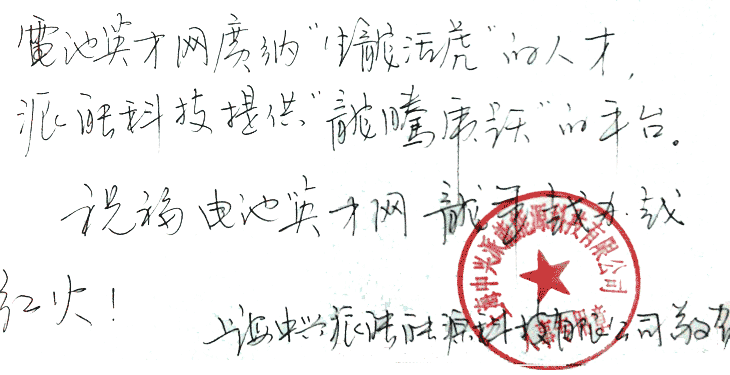 電池英才网廣纳“生龍活虎”的人才，
派能科技提供“龍騰虎跃”的平台。
祝福电池英才网龍年越办越
红火！
上海中兴派能能源科技有限公司敬贺
上海中兴派能能源科技有限公司